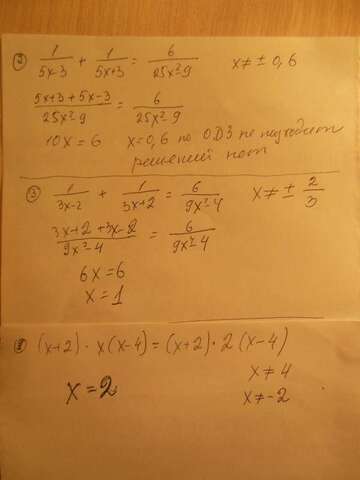 ② 1/(5x-3) + 1/(5x+3) = 6/(25x²-9) x ≠ ± 0,6
(5x+3+5x-3)/(25x²-9) = 6/(25x²-9)
10x = 6 x=0,6 по ОДЗ не подходит
решений нет
③ 1/(3x-2) + 1/(3x+2) = 6/(9x²-4) x ≠ ± 2/3
(3x+2+3x-2)/(9x²-4) = 6/(9x²-4)
6x=6
x=1
(x+2) · x(x-4) = (x+2) · 2(x-4)
x ≠ 4
x = 2
x ≠ -2